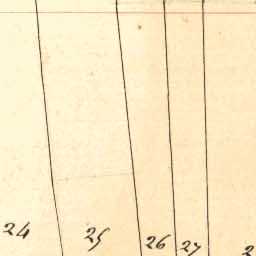 24 25 26 27 2